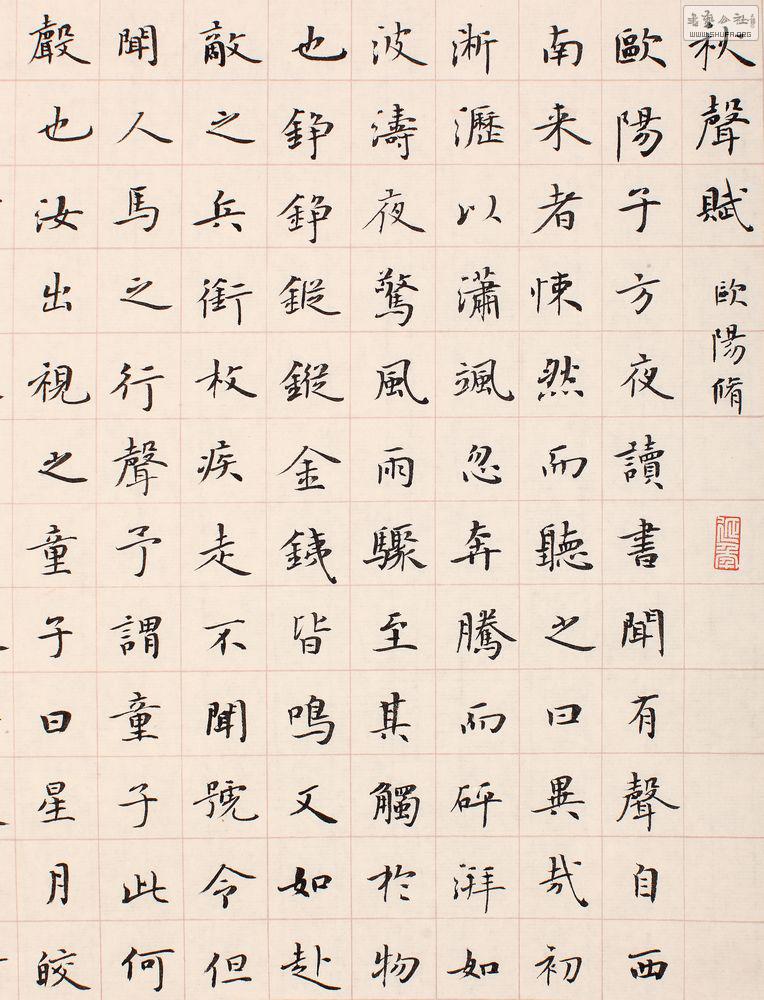 秋聲賦 歐陽脩
歐陽子方夜讀書聞有聲自西
南来者悚然而聽之曰異哉初
淅瀝以瀟颯忽奔騰而砰湃如
波濤夜驚風雨驟至其觸於物
也錚錚鏦鏦金鐵皆鳴又如赴
敵之兵銜枚疾走不聞號令但
聞人馬之行聲予謂童子此何
聲也汝出視之童子曰星月皎
书艺公社
WWW.SHUFA.ORG